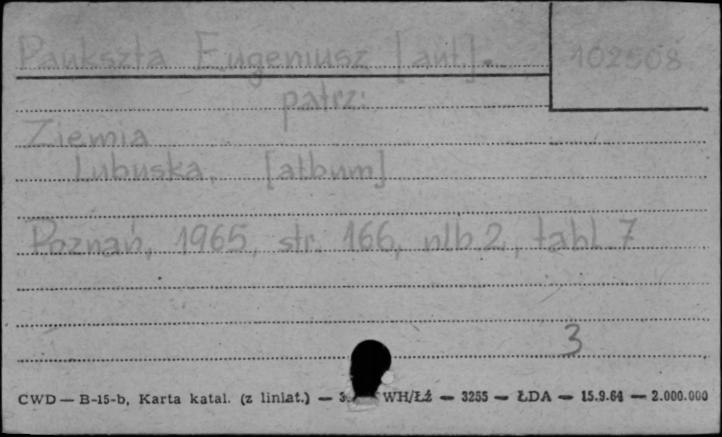 Paukszta Eugeniusz [aut.]. 102508
patrz:
Ziemia
Lubuska. [album]
Poznań, 1965, str. 166, nlb. 2, tabl. 7
3
CWD — B-15-b, Karta katal. (z liniat.) — WH/Łź — 3255 — ŁDA — 15.9.64 — 2.000.000